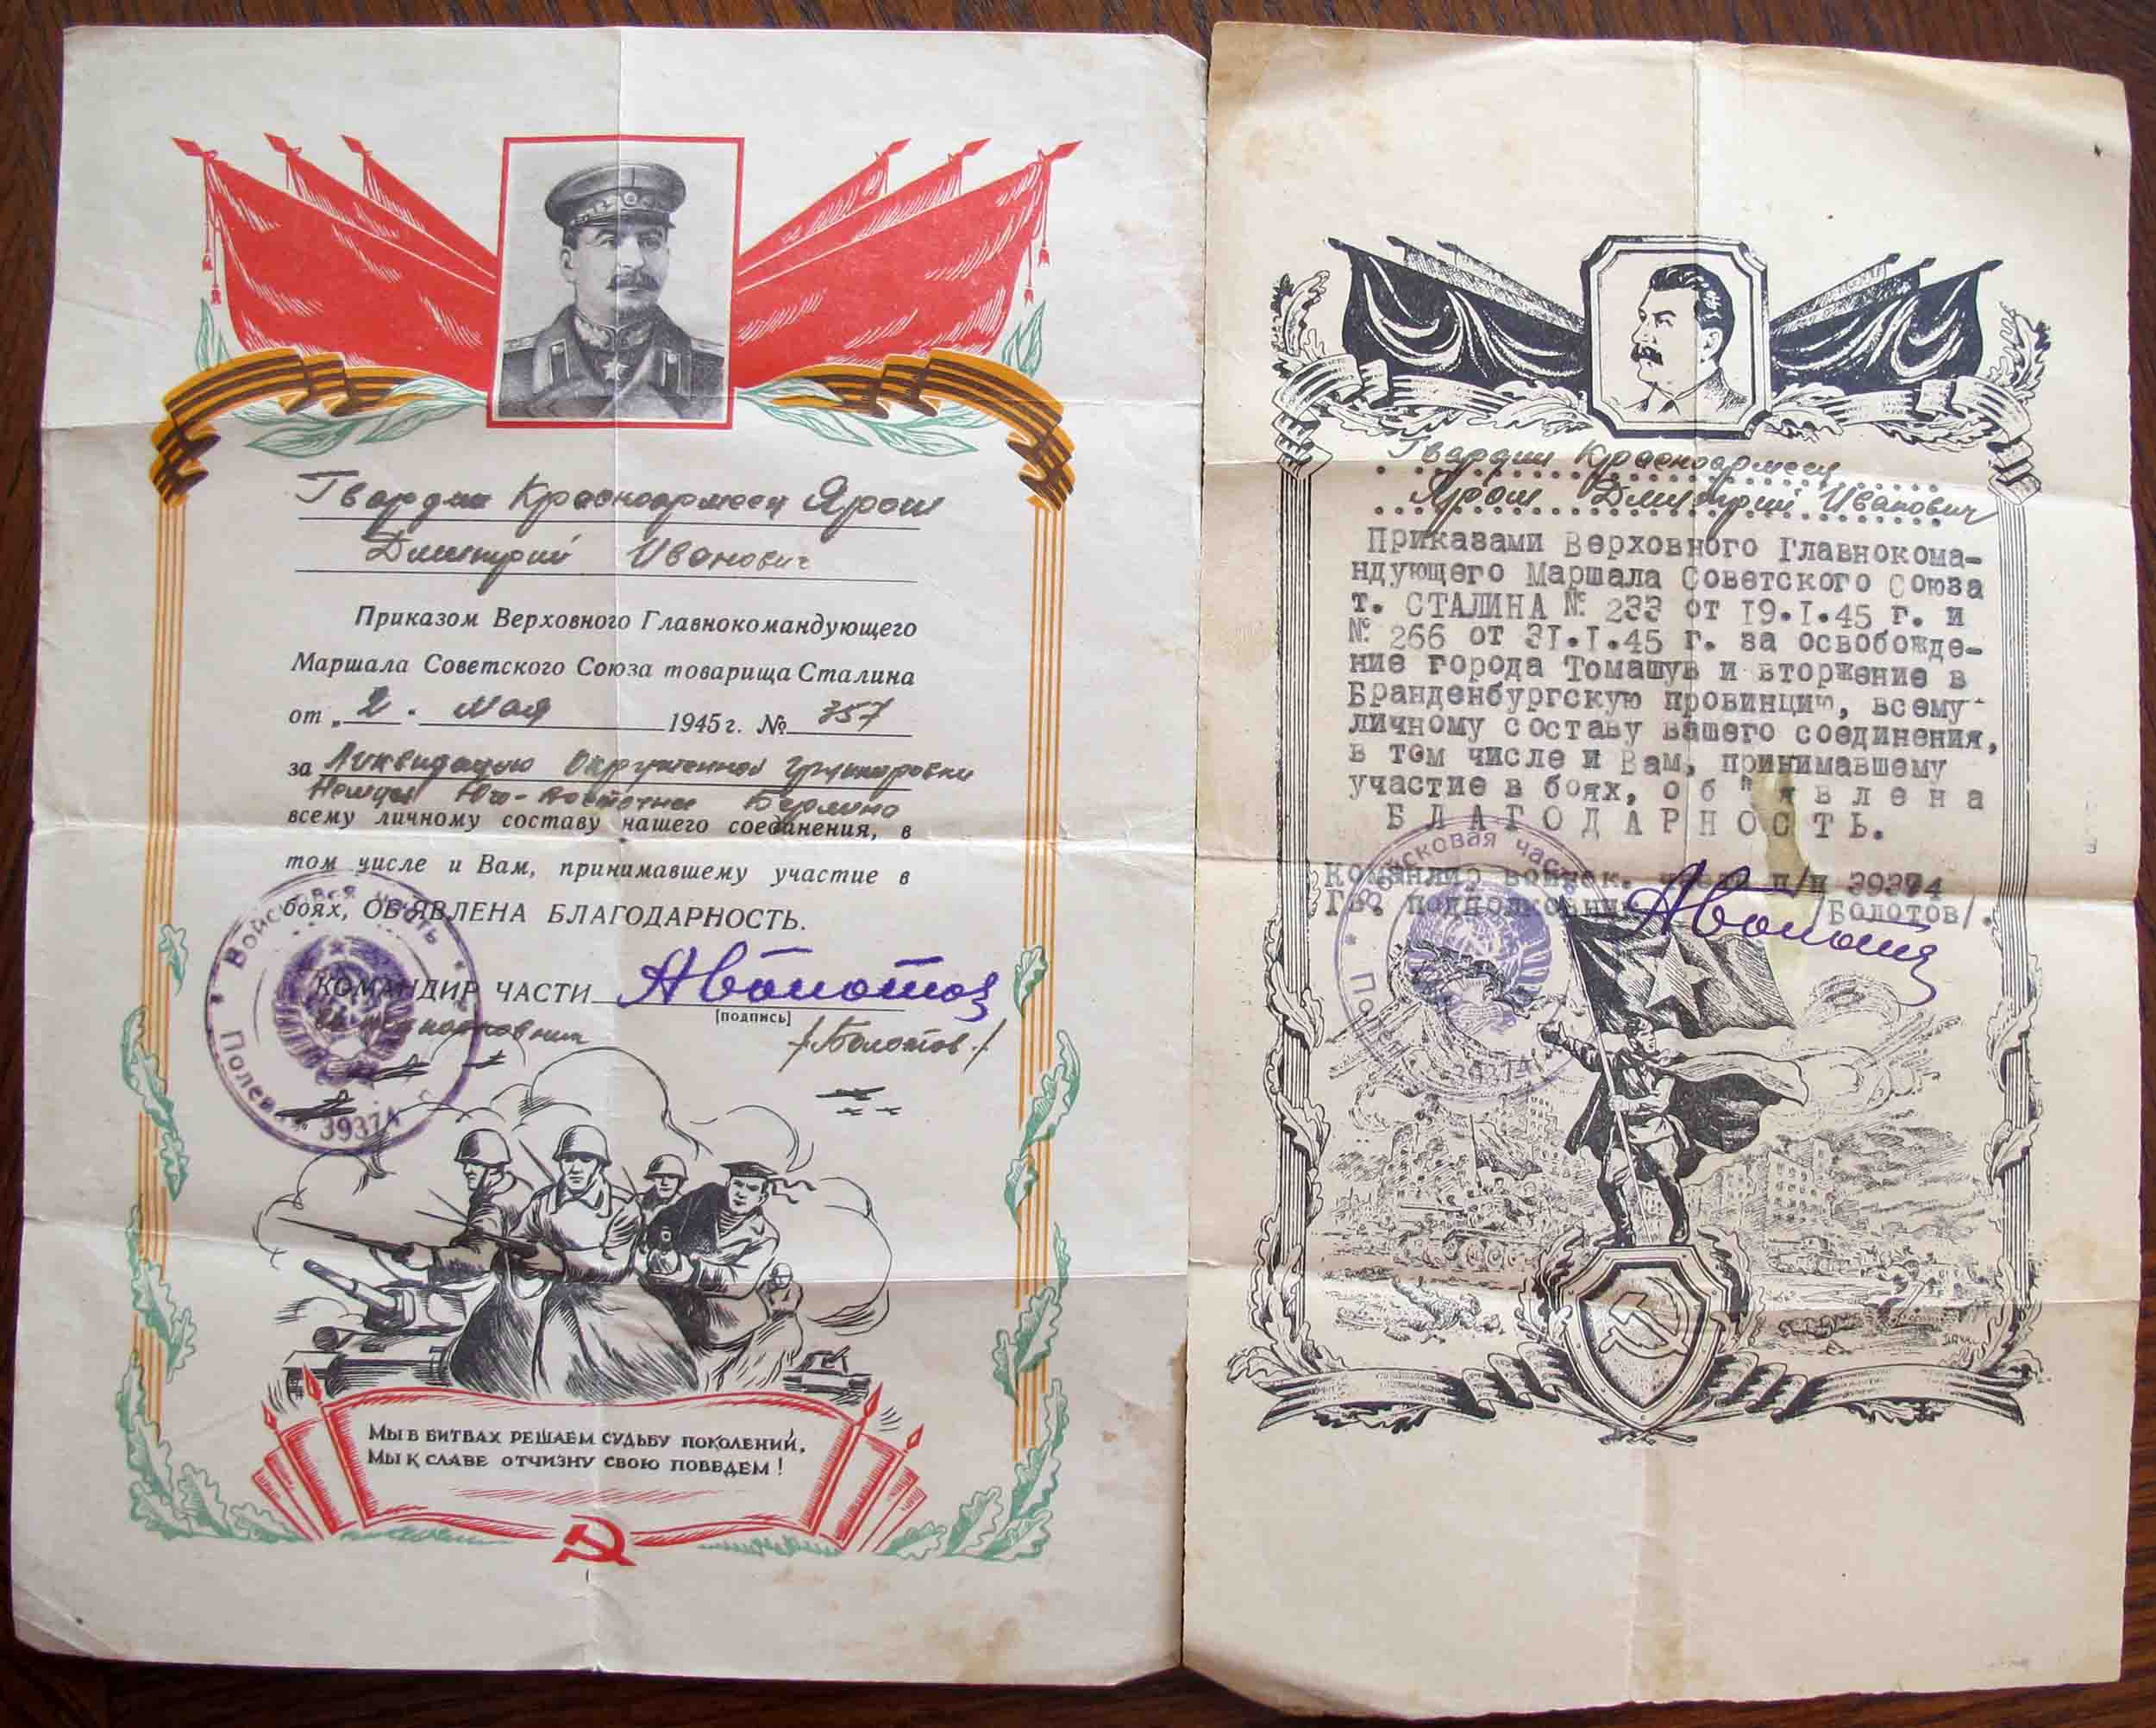 Гвардии Красноармеец Ярош
Дмитрий Иванович
Приказом Верховного Главнокомандующего
Маршала Советского Союза товарища Сталина
от „2. мая 1945 г. № 357
за Ликвидацию Окруженной группировки
Немцев Юго-восточнее Берлина
всему личному составу нашего соединения, в
том числе и Вам, принимавшему участие в
боях, ОБЪЯВЛЕНА БЛАГОДАРНОСТЬ.
КОМАНДИР ЧАСТИ
[подпись]
подполковник /Болотов/
Войсковая часть
Полевая 39374
МЫ В БИТВАХ РЕШАЕМ СУДЬБУ ПОКОЛЕНИЙ,
МЫ К СЛАВЕ ОТЧИЗНУ СВОЮ ПОВЕДЕМ!
Гвардии Красноармеец
Ярош Дмитрий Иванович
Приказами Верховного Главнокома-
ндующего Маршала Советского Союза
т. СТАЛИНА № 233 от 19.I.45 г. и
№ 266 от 31.I.45 г. за освобожде-
ние города Томашув и вторжение в
Бранденбургскую провинцию, всему
личному составу вашего соединения,
в том числе и Вам, принимавшему
участие в боях, об"явлена
БЛАГОДАРНОСТЬ.
Командир войск. части п/п 39374
Гв. подполковник /Болотов/.
Войсковая часть
39374